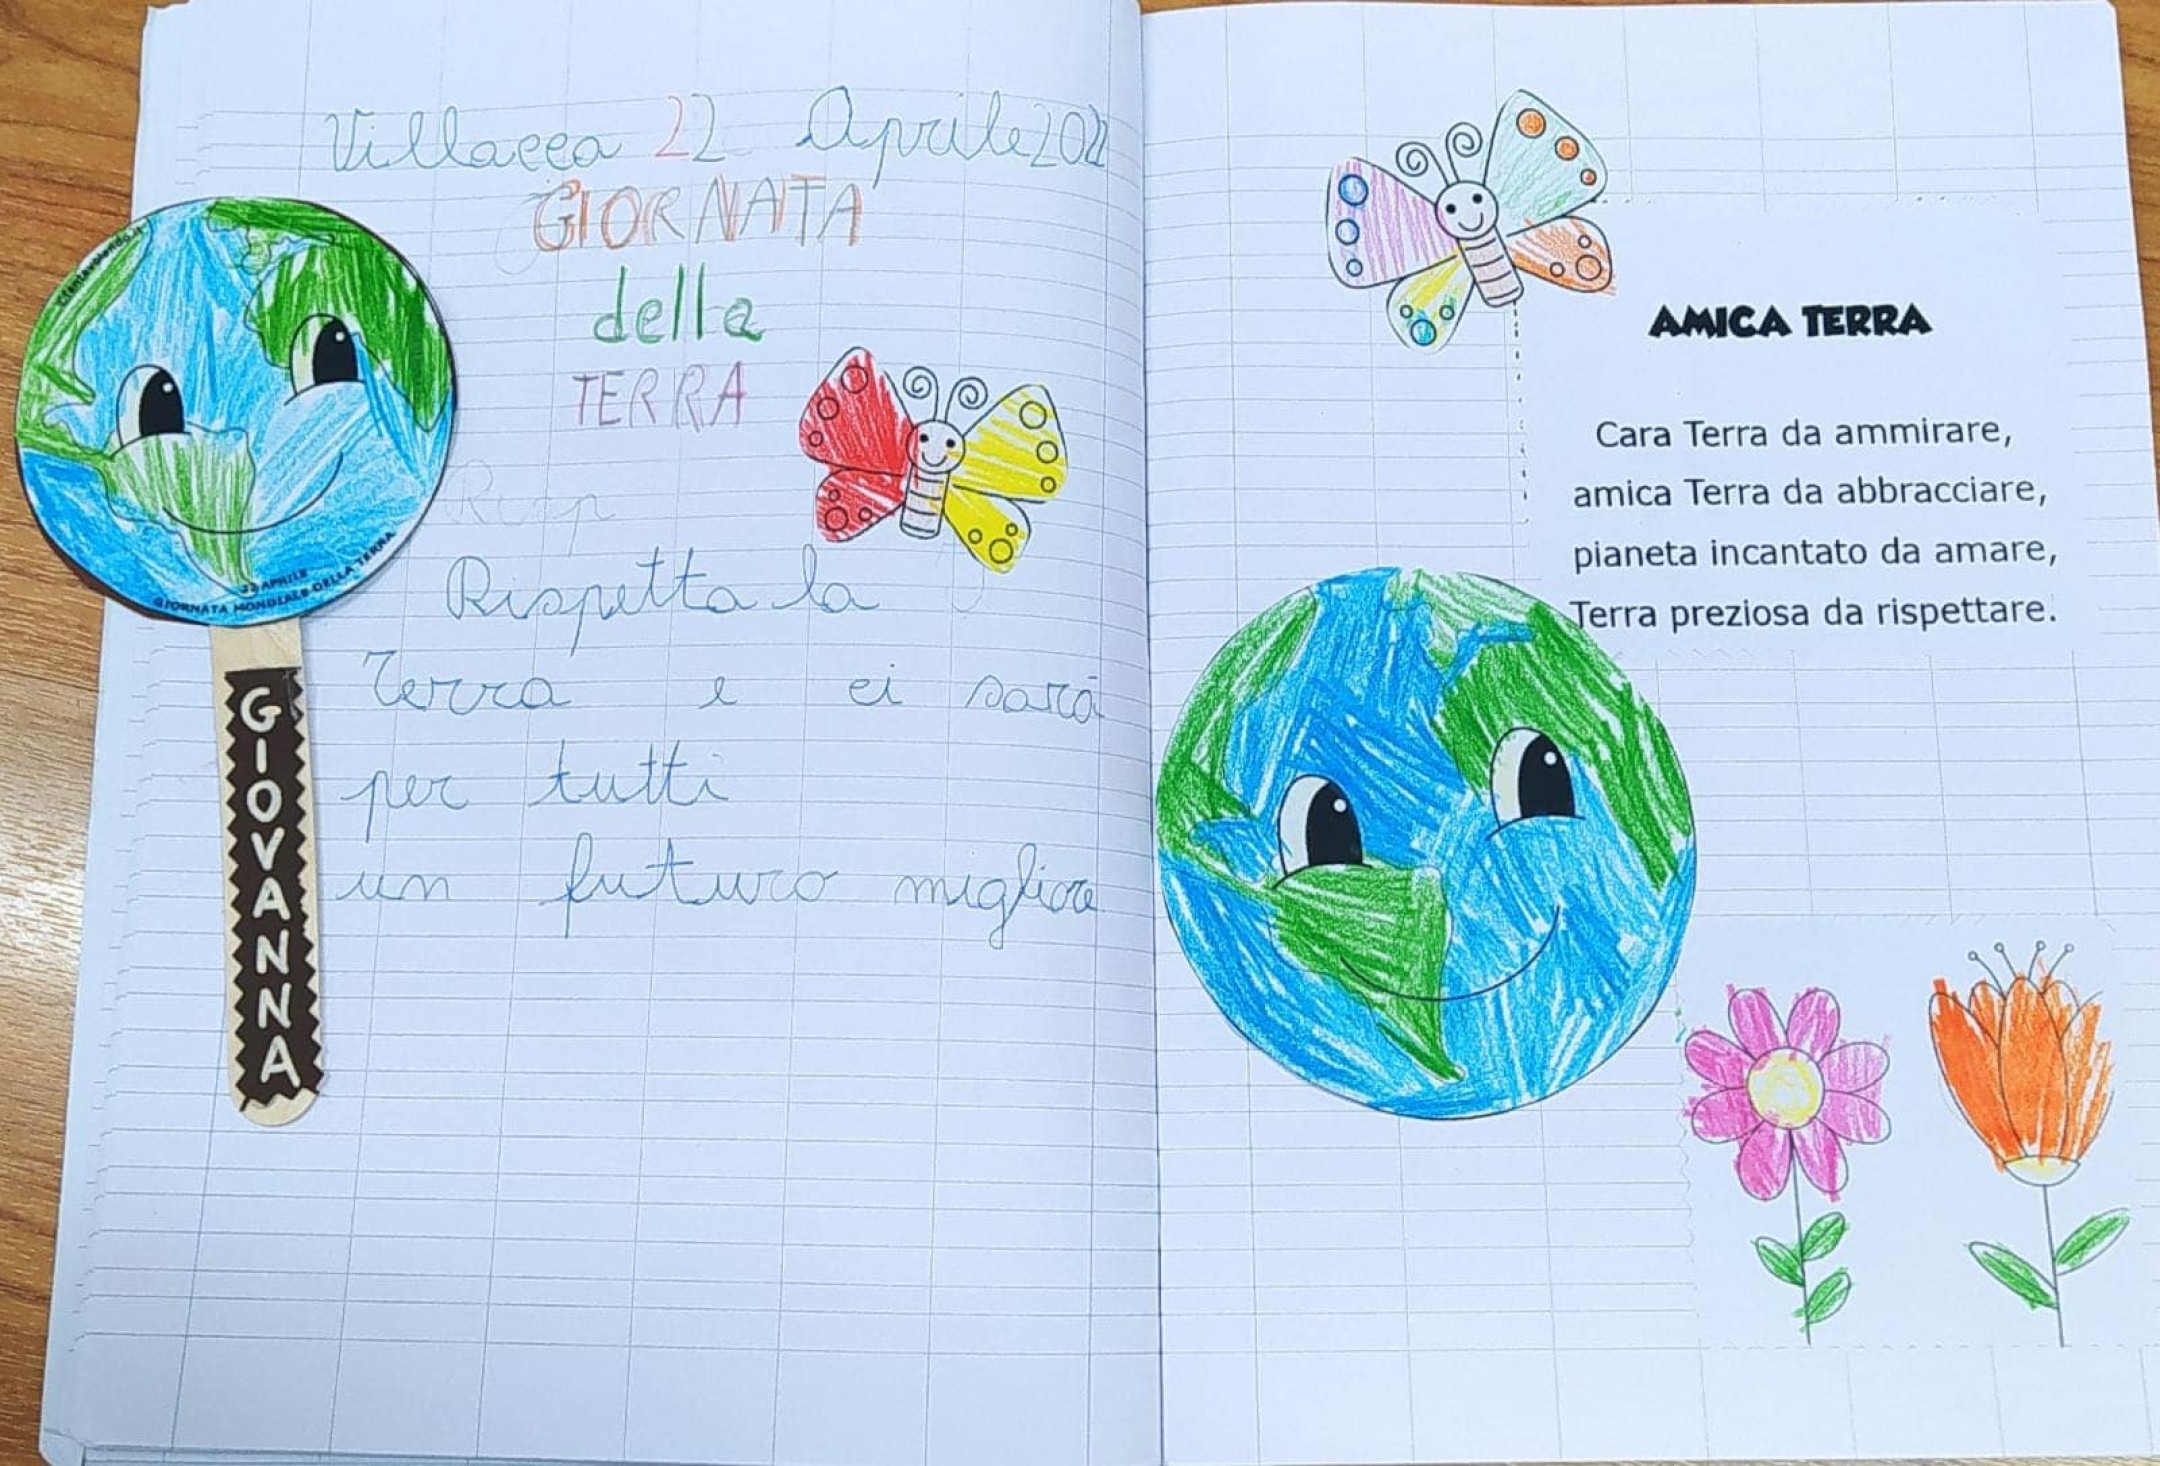 Villacca 22 Aprile 202
GIORNATA
della
TERRA
Risp
Rispetta la
Terra e ci sarà
per tutti
un futuro migliore
22 APRILE
GIORNATA MONDIALE DELLA TERRA
GIOVANNA
AMICA TERRA
Cara Terra da ammirare,
amica Terra da abbracciare,
pianeta incantato da amare,
Terra preziosa da rispettare.